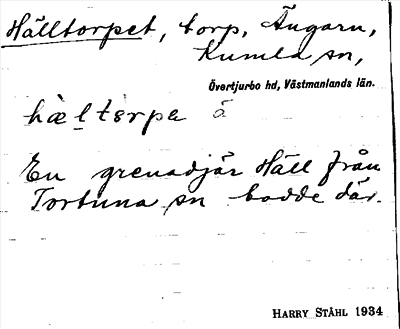 Hälltorpet, torp, Ängarn,
Kumla sn,
Övertjurbo hd, Västmanlands län.
hæltɵrpe å
En grenadjär Häll från
Tortuna sn bodde där.
HARRY STÅHL 1934